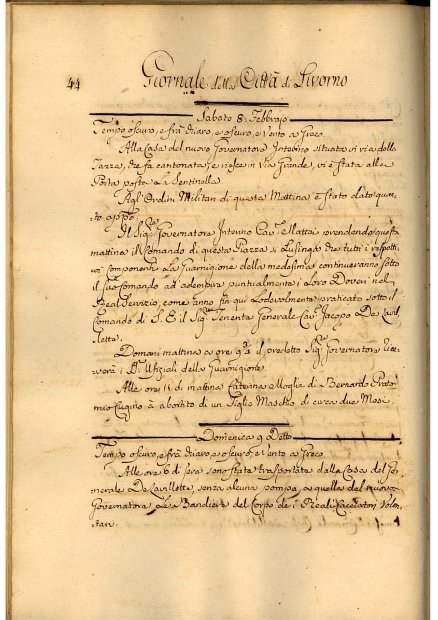 44
Giornale della Città di Livorno
Sabato 8 Febbrajo
Tempo oscuro, e frà chiaro, e oscuro, e Vento a Greco
Alla Casa del nuovo Governatore Interino situata in via della
Tazza, che fa cantonata, e riesce in Via Grande, vi è stata alla
Porta posta La Sentinella.
Agl' Ordini Militari di questa Mattina è stato dato quan-
to appo:
Il Sigre Governatore Interino Cave Mattei prendendo questa
mattina il Comando di questa Piazza si Lusinga che tutti i rispetti-
vi componenti La Guarnigione della medesima continueranno sotto
il suo Comando ad adempire puntualmente i Loro Doveri nel
Real Servizio, come anno fin qui Lodevolmente praticato sotto il
Comando di S. E. il Sigre Tenente Generale Cav Jacopo De Lavil-
lette.
Domani mattina a ore 9 il predetto Sigre Governatore rice-
verà i SS. Ufiziali della Guarnigione.
Alle ore 11 di mattina Caterina Moglie di Bernardo
Cugino à abortito di un Figlio Maschio di circa due Mesi.
Domenica 9 Detto
Tempo oscuro, e frà chiaro, e oscuro, e Vento a Greco
Alle ore 6 di sera sono state trasportate dalla Casa del Ge-
nerale De Lavillette senza alcuna pompa, a quella del nuovo
Governatore Le Bandiere del Corpo de i Reali Cacciatori Volon-
tari.